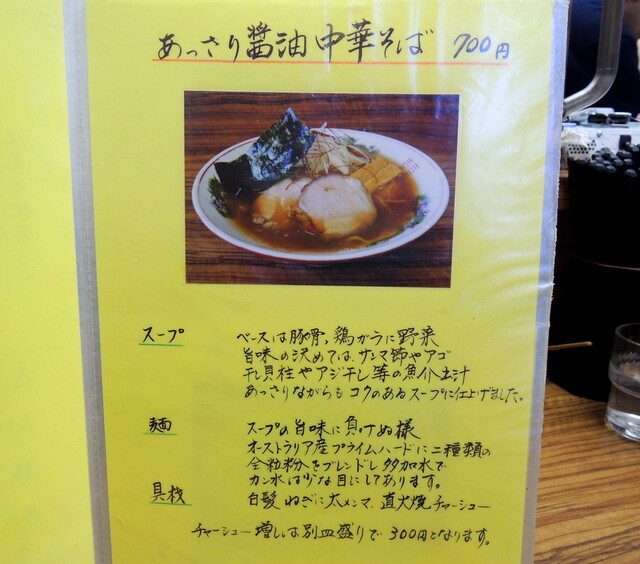 あっさり醤油中華そば 700円
スープ ベースは豚骨、鶏ガラに野菜
旨味の決めては、サンマ節やアゴ
干し貝柱やアジ干し等の魚介出汁
あっさりながらもコクのあるスープに仕上げました。
麺 スープの旨味に負けぬ様
オーストラリア産プライムハードに二種類の
全粒粉をブレンドし多加水で
カン水は少な目にしてあります。
具材 白髪ねぎに太メンマ、直火焼チャーシュー
チャーシュー増しは別皿盛りで300円となります。